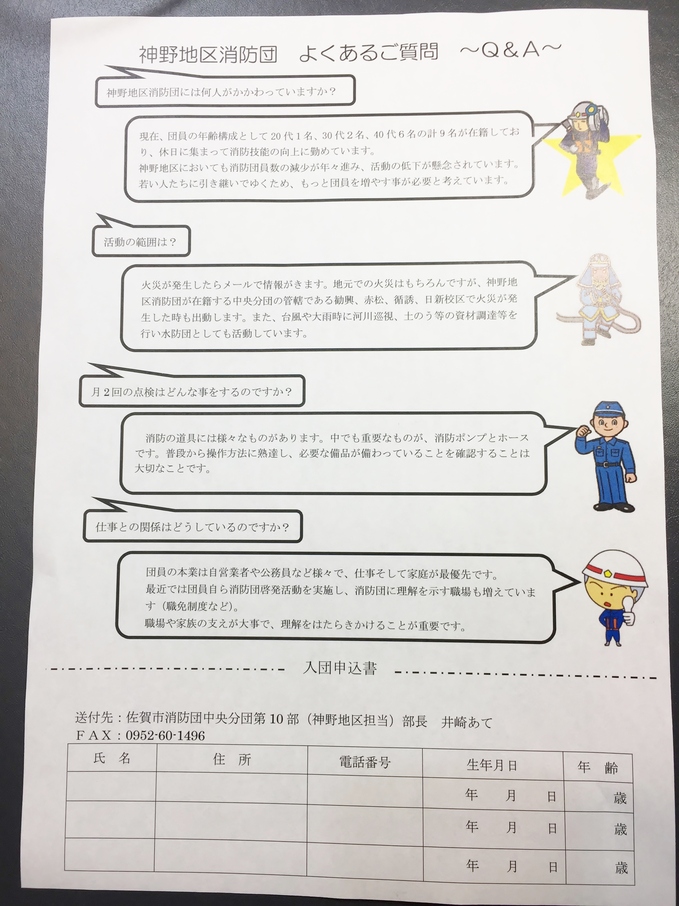 神野地区消防団　よくあるご質問　～Q＆A～
神野地区消防団には何人がかかわっていますか？
現在、団員の年齢構成として20代1名、30代2名、40代6名の計9名が在籍してお
り、休日に集まって消防技能の向上に勤めています。
神野地区においても消防団員数の減少が年々進み、活動の低下が懸念されています。
若い人たちに引き継いでゆくため、もっと団員を増やす事が必要と考えています。
活動の範囲は？
火災が発生したらメールで情報がきます。地元での火災はもちろんですが、神野地
区消防団が在籍する中央分団の管轄である勧興、赤松、循誘、日新校区で火災が発
生した時も出動します。また、台風や大雨時に河川巡視、土のう等の資材調達等を
行い水防団としても活動しています。
月2回の点検はどんな事をするのですか？
消防の道具には様々なものがあります。中でも重要なものが、消防ポンプとホース
です。普段から操作方法に熟達し、必要な備品が備わっていることを確認することは
大切なことです。
仕事との関係はどうしているのですか？
団員の本業は自営業者や公務員など様々で、仕事そして家庭が最優先です。
最近では団員自ら消防団啓発活動を実施し、消防団に理解を示す職場も増えていま
す（職免制度など）。
職場や家族の支えが大事で、理解をはたらきかけることが重要です。
入団申込書
送付先：佐賀市消防団中央分団第10部（神野地区担当）部長　井崎あて
ＦＡＸ：0952-60-1496
氏　名　住　所　電話番号　生年月日　年　齢
年　月　日　歳
年　月　日　歳
年　月　日　歳